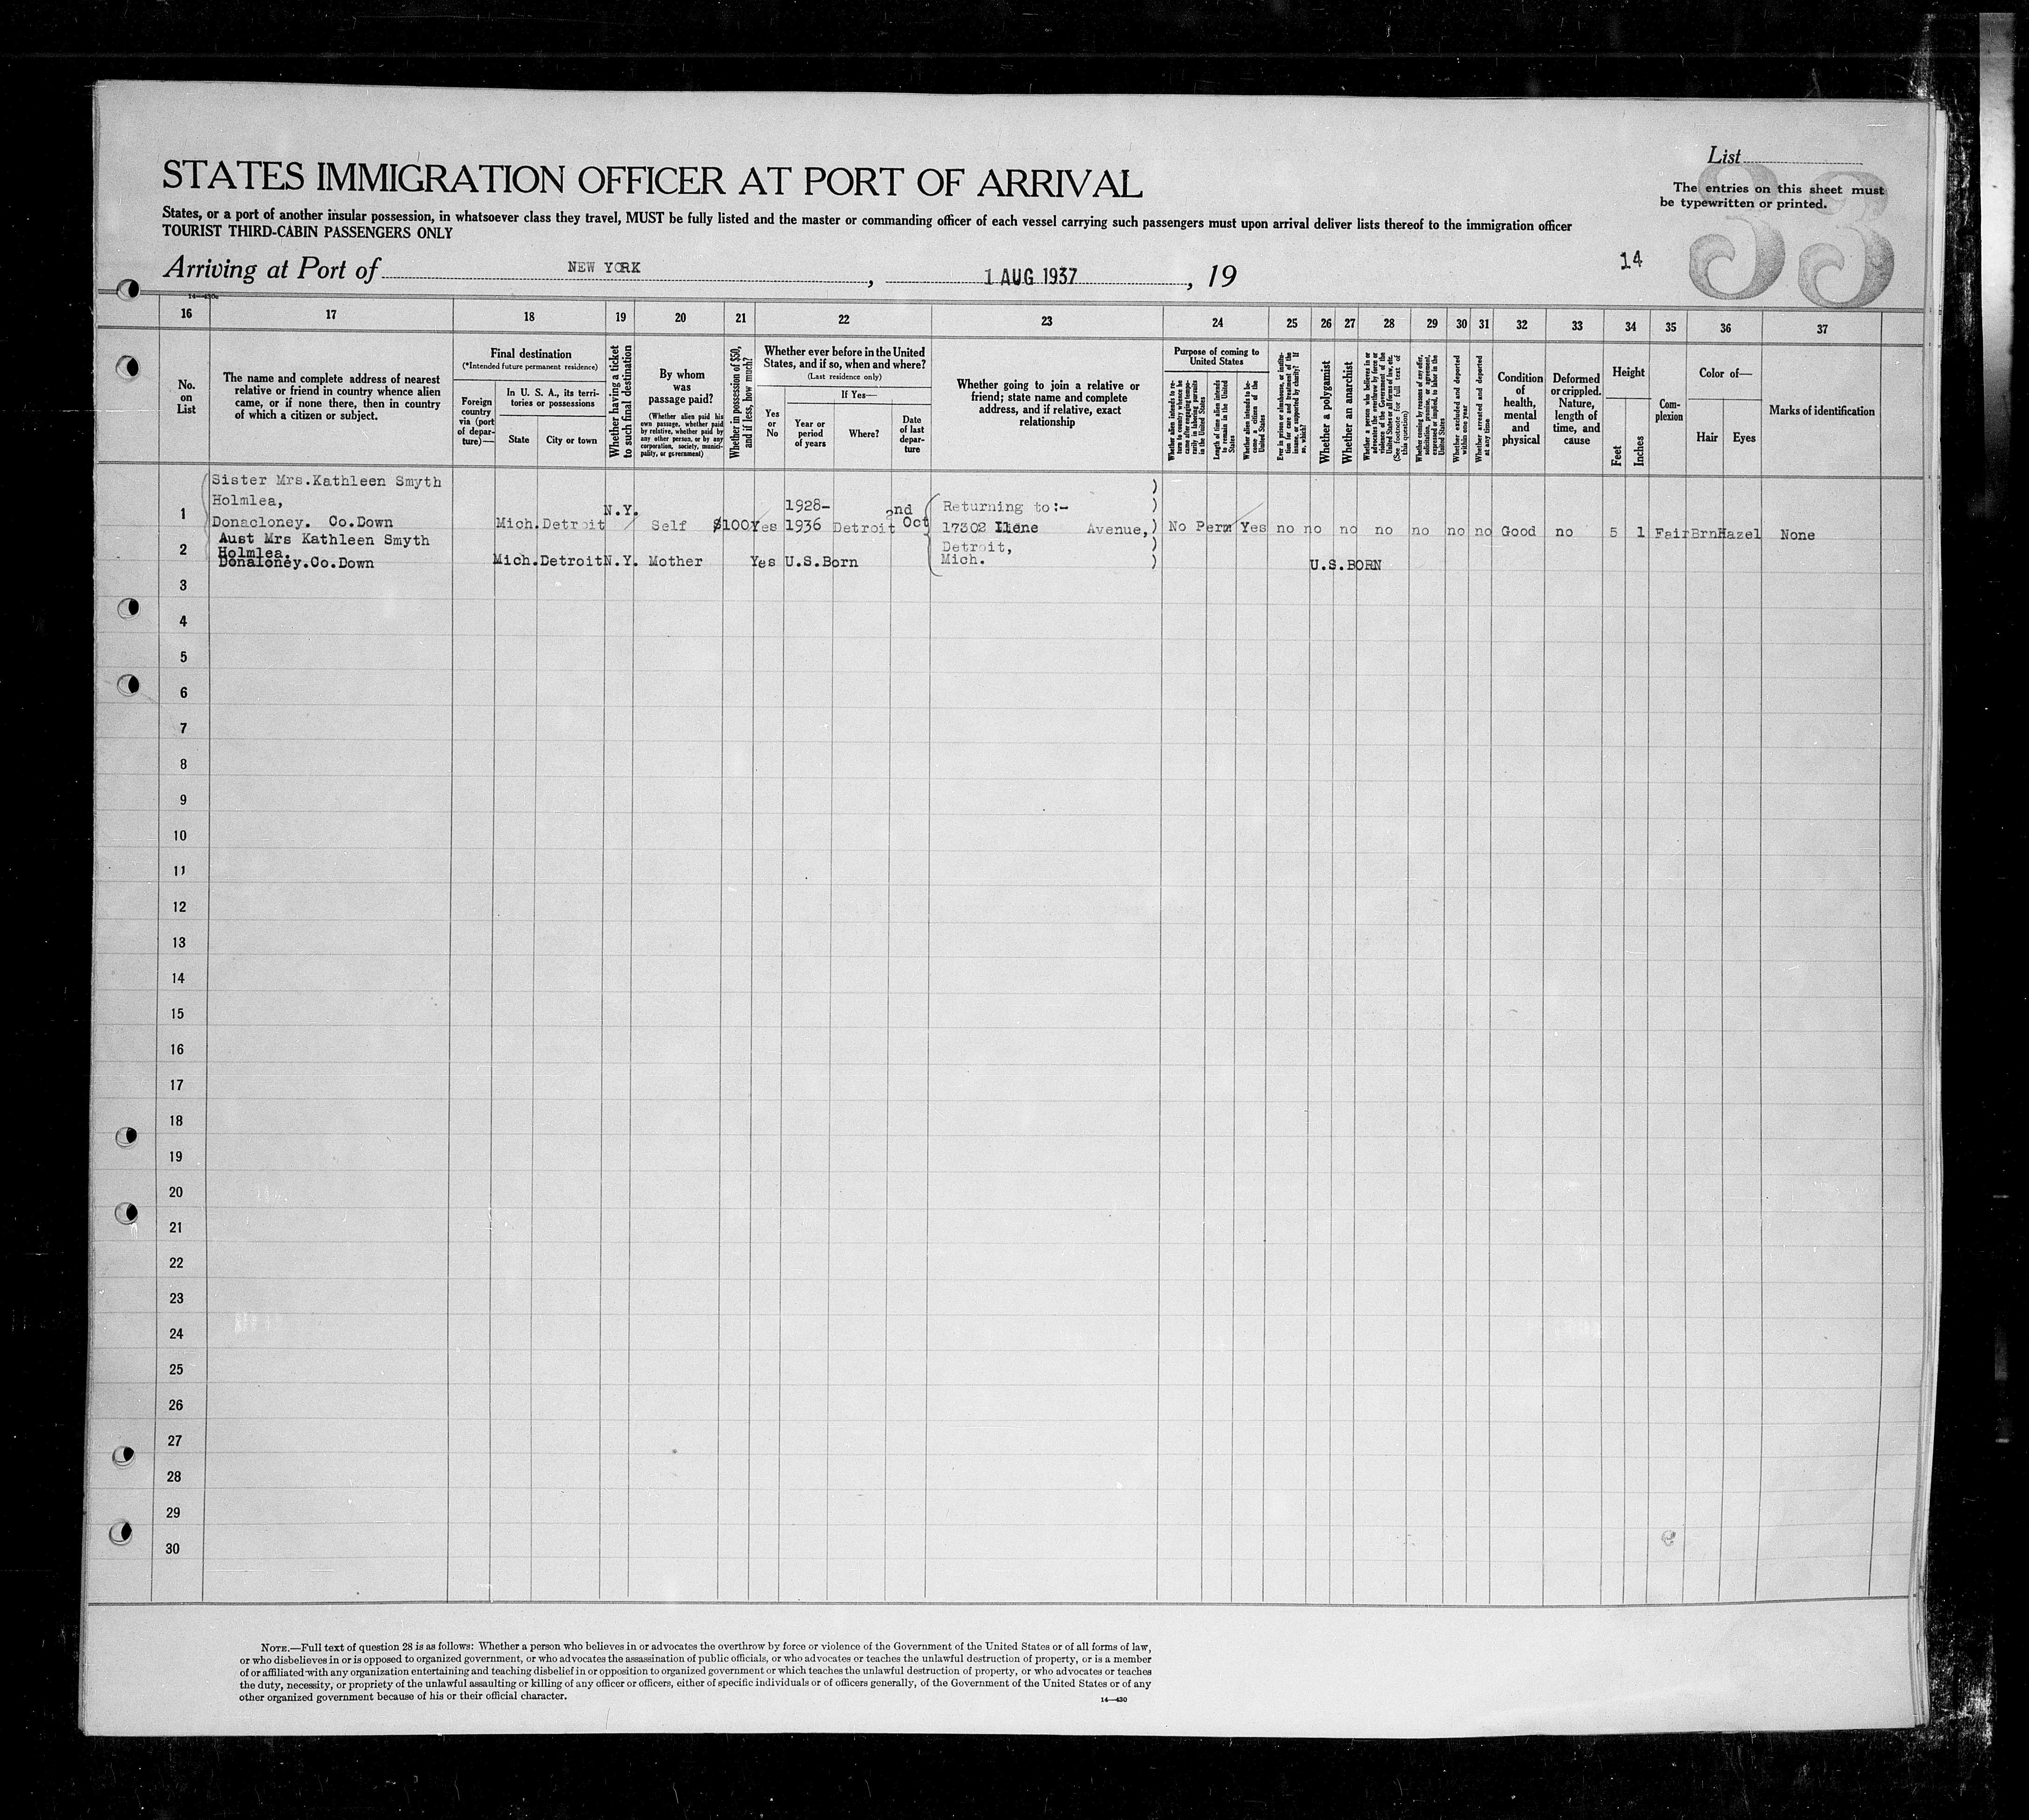 List
The entries on this sheet must
be typewritten or printed.
33
STATES IMMIGRATION OFFICER AT PORT OF ARRIVAL
States, or a port of another insular possession, in whatsoever class they travel, MUST be fully listed and the master or commanding officer of each vessel carrying such passengers must upon arrival deliver lists thereof to the immigration officer
TOURIST THIRD-CABIN PASSENGERS ONLY
Arriving at Port of NEW YORK, 1 AUG 1937, 19
14
14—430c
16 17 18 19 20 21 22 23 24 25 26 27 28 29 30 31 32 33 34 35 36 37
No. on List
The name and complete address of nearest
relative or friend in country whence alien
came, or if none there, then in country
of which a citizen or subject.
Final destination
(*Intended future permanent residence)
Foreign
country
via (port
of depar-
ture)—
In U. S. A., its terri-
tories or possessions
State
City or town
Whether having a ticket
to such final destination
By whom
was
passage paid?
(Whether alien paid his
own passage, whether paid
by relative, whether paid by
any other person, or by any
corporation, society, munici-
pality, or government)
Whether in possession of $50,
and if less, how much?
Whether ever before in the United
States, and if so, when and where?
(Last residence only)
Yes
or
No
If Yes—
Year or
period
of years
Where?
Date
of last
depar-
ture
Whether going to join a relative or
friend; state name and complete
address, and if relative, exact
relationship
Purpose of coming to
United States
Whether alien intends to re-
turn to country whence he
came after engaging tempo-
rarily in laboring pursuits
in the United States
Length of time alien intends
to remain in the United
States
Whether alien intends to be-
come a citizen of the
United States
Ever in prison or almshouse, or institu-
tion for care and treatment of the
insane, or supported by charity? If
so, which?
Whether a polygamist
Whether an anarchist
Whether a person who believes in or
advocates the overthrow by force or
violence of the Government of the
United States or all forms of law, etc.
(See footnote for full text of
this question)
Whether coming by reasons of any offer,
solicitation, promise, or agreement,
expressed or implied, to labor in the
United States
Whether excluded and deported
within one year
Whether arrested and deported
at any time
Condition
of
health,
mental
and
physical
Deformed
or crippled.
Nature,
length of
time, and
cause
Height
Feet
Inches
Com-
plexion
Color of—
Hair
Eyes
Marks of identification
Sister Mrs.Kathleen Smyth
Holmlea,
1 Donacloney. Co.Down Mich. Detroit N.Y. Self $100 Yes 1928-1936 Detroit 2nd Oct Returning to:- 17302 Ilene Avenue, Detroit, Mich. No Perm Yes no no no no no no no Good no 5 1 Fair Brn Hazel None
Aust Mrs Kathleen Smyth
Holmlea.
2 Donaloney.Co.Down Mich. Detroit N.Y. Mother Yes U.S.Born U.S.BORN
3
4
5
6
7
8
9
10
11
12
13
14
15
16
17
18
19
20
21
22
23
24
25
26
27
28
29
30
NOTE.—Full text of question 28 is as follows: Whether a person who believes in or advocates the overthrow by force or violence of the Government of the United States or of all forms of law,
or who disbelieves in or is opposed to organized government, or who advocates the assassination of public officials, or who advocates or teaches the unlawful destruction of property, or is a member
of or affiliated with any organization entertaining and teaching disbelief in or opposition to organized government or which teaches the unlawful destruction of property, or who advocates or teaches
the duty, necessity, or propriety of the unlawful assaulting or killing of any officer or officers, either of specific individuals or of officers generally, of the Government of the United States or of any
other organized government because of his or their official character.
14—430